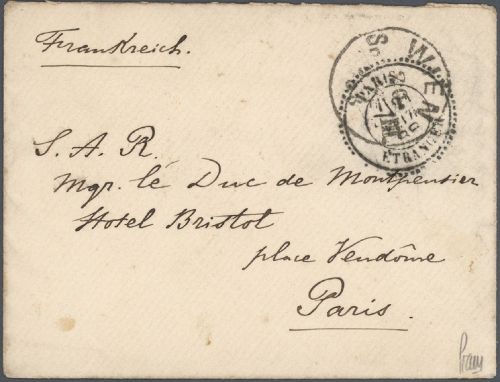 Frankreich.
WIEN
PARIS
ETRANGER
S. A. R.
Mgr. lé Duc de Montpensier
Hotel Bristol
place Vendôme
Paris.